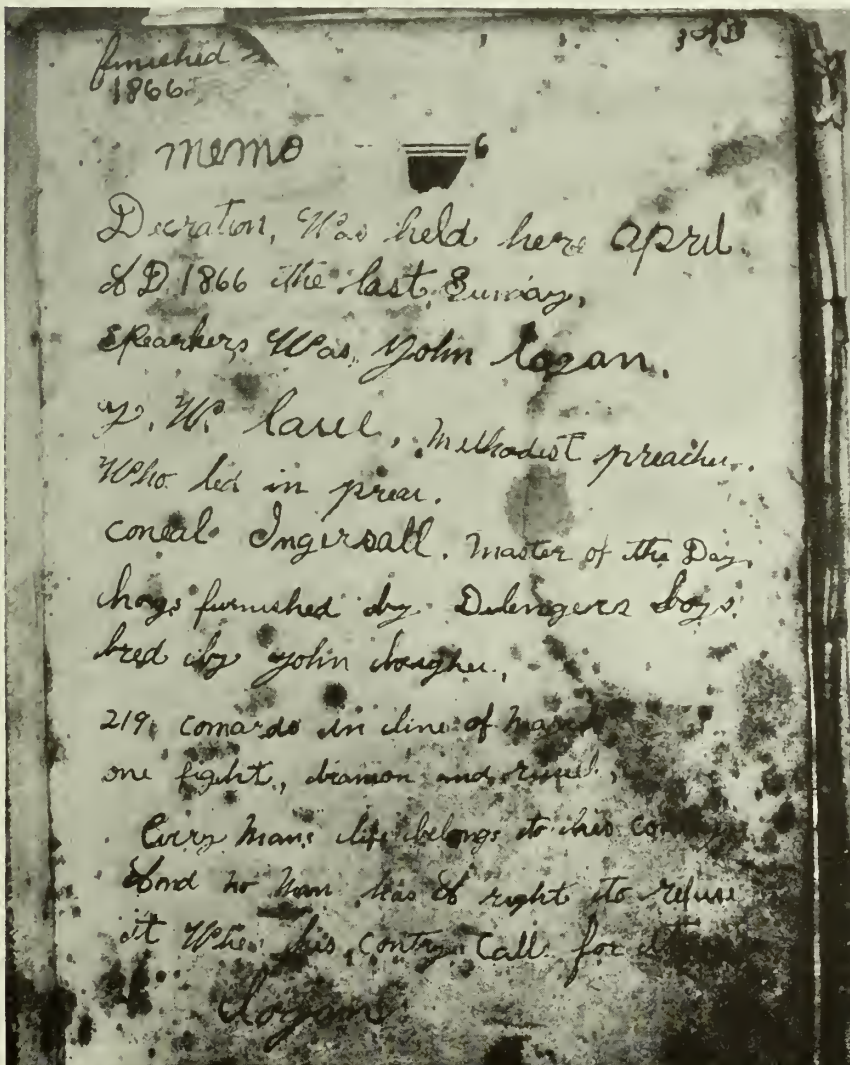 finished
1866
memo
6
Decration, Was held here April.
A D. 1866 the last Sunday,
Spearkers Was, John Logan.
J. W. Lane, Methodist preacher.
Who led in prear.
Coneal Ingersall. Master of the Day
hogs furnished by Dilengers boys.
bred by John
219, comards in line of March
one fight, and
Every Mans life belongs to his contry
And no Man has A right to refuse
it When his, contry Call for it
Logan